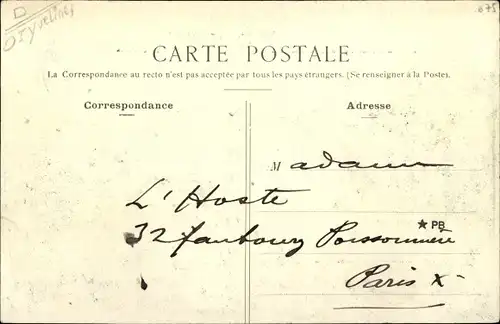 D
078 Yvelines
075
CARTE POSTALE
La Correspondance au recto n'est pas acceptée par tous les pays étrangers. (Se renseigner à la Poste).
Correspondance
Adresse
Madame
L'Hoste
32 faubourg Poissonnière
★ PB
Paris X